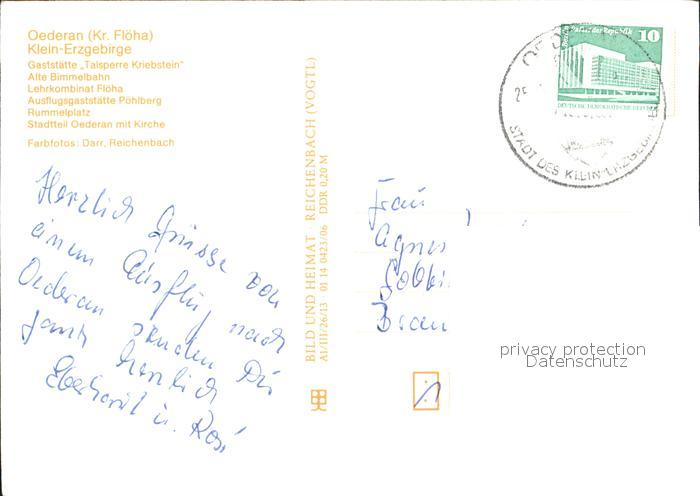 Oederan (Kr. Flöha)
Klein-Erzgebirge
Gaststätte „Talsperre Kriebstein"
Alte Bimmelbahn
Lehrkombinat Flöha
Ausflugsgaststätte Pöhlberg
Rummelplatz
Stadtteil Oederan mit Kirche
Farbfotos: Darr, Reichenbach
Herzlich Grüsse von
einem Ausflug nach
Oederan senden Dir
herzlich
Eberhard u. Rosi
BILD UND HEIMAT REICHENBACH (VOGTL)
A1/III/26/13 01 14 0423/06 DDR 0,20 M
Palast der Republik 10
DEUTSCHE DEMOKRATISCHE REPUBLIK
STADT DES KLEIN-ERZGEBIRGE
Frau
Agnes
privacy protection
Datenschutz